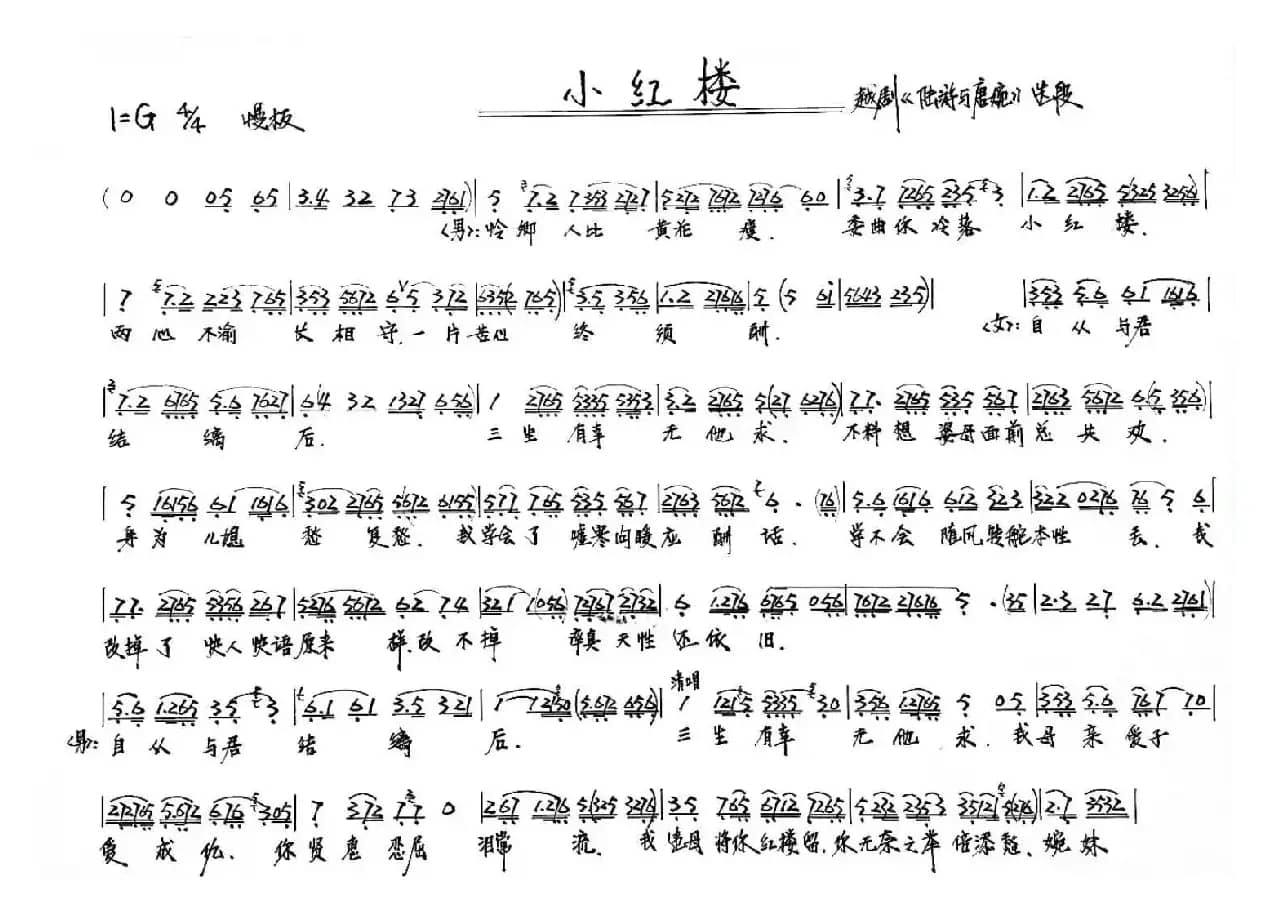 小红楼
1=G 4/4 慢板 越剧《陆游与唐婉》选段
(0 0 05 65 | 3.4 32 73 2761) | 5 7.2 7353 2727 | 5272 7672 7276 60 | 3.7 7265 235 3 | 1.2 2765 5(325 3256) |
〈男〉: 怜卿人比黄花瘦. 委曲你冷落小红楼.
| 7 7.2 223 765 | 353 5672 65 372 | 6356(2 765) | 3.5 356 | 1.2 27676 | 5 (5 6i | 5643 235) | 353 5.6 61 1616 |
两心不渝长相守.一片苦心终须酬. 〈女〉: 自从与君
| 7.2 6765 5.6 7627 | 6(4 32 1327 656) | 1 2765 5335 5353 | 3.2 2765 5(27 6276) | 77. 2765 535 567 | 2763 5672 6(5 356) |
结缡后. 三生有幸无他求. 不料想婆母面前总失欢.
| 5 16156 61 1616 | 302 2765 5672 6155 | 577 765 535 567 | 2763 5672 6. (76) | 5.6 1616 612 323 | 322 0276 76 5 6 |
身为儿媳愁复愁. 我学会了嘘寒问暖应酬话. 学不会随风转舵本性丢. 我
| 77. 2765 5356 267 | 5276 5672 62 74 | 321 (056) 72767 2732 | 6 1.276 6765 056 | 7672 27676 5 . (35 | 2.3 27 6.2 2761) |
改掉了快人快语原来样.改不掉率真天性还依旧.
清唱
| 5.6 1.265 35 3 | 6.1 61 3.5 321 | 1 (5.672 656) | 1 1215 5335 30 | 356 1.2765 5 05 | 353 5.6 767 70 |
〈男〉: 自从与君结缡后. 三生有幸无他求. 我母亲爱子
| 5.672 676 305 | 7 372 77 0 | 267 1.276 5(325 3276) | 3.5 765 6712 7265 | 5232 2353 3512 | 2.7 3532 |
变成仇. 你贤惠恐屈泪常流. 我违母将你红楼留.你无奈之举倍添愁. 婉妹